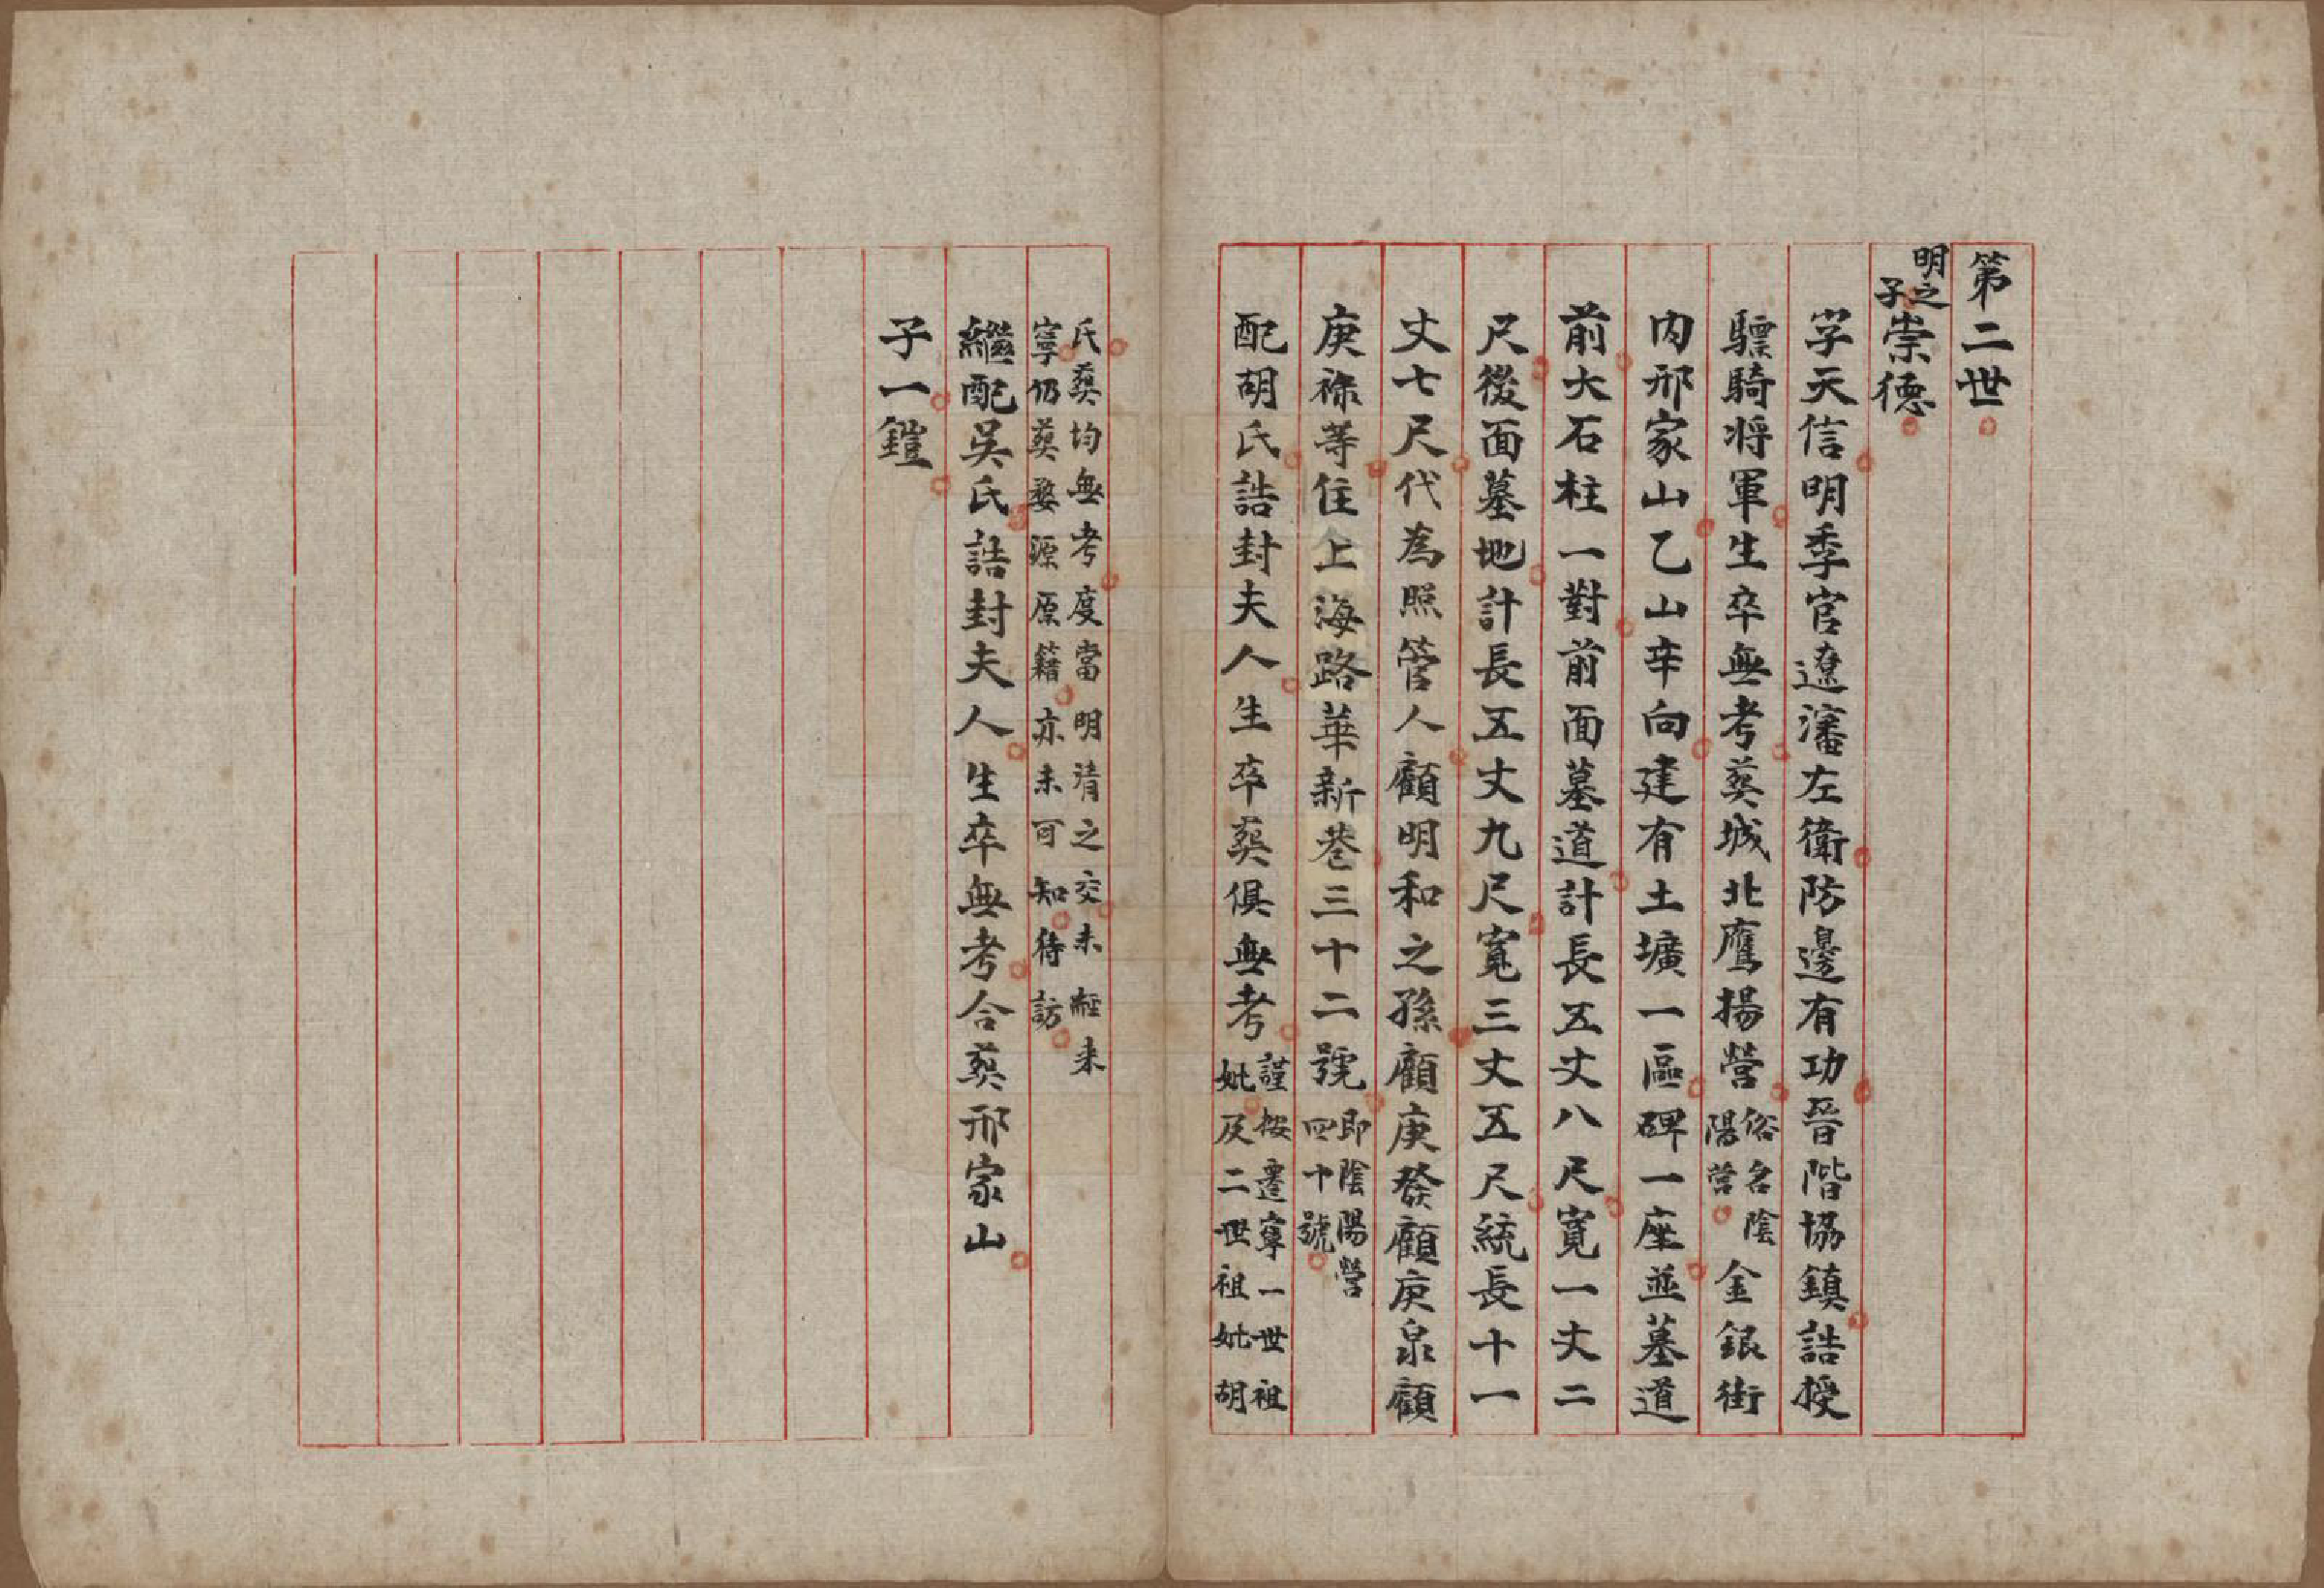 第二世
明之子崇德
字天信明季官遼瀋左衛防邊有功晉階協鎮誥授
驃騎将軍生卒無考葬城北鷹揚營俗名陰陽营金銀街
内邢家山乙山辛向建有土壙一區碑一座並墓道
前大石柱一對前面墓道計長五丈八尺寬一丈二
尺後面墓地計長五丈九尺寬三丈五尺統長十一
丈七尺代為照管人顧明和之孫顧庚發顧庚泉顧
庚祿等住上海路華新巷三十二號即陰陽營四十號
配胡氏誥封夫人生卒葬俱無考謹按遷寧一世祖妣及二世祖妣胡
氏葬均無考度當明清之交未經来寧仍葬婺源原籍亦未可知待訪
繼配吳氏誥封夫人生卒無考合葬邢家山
子一鎧